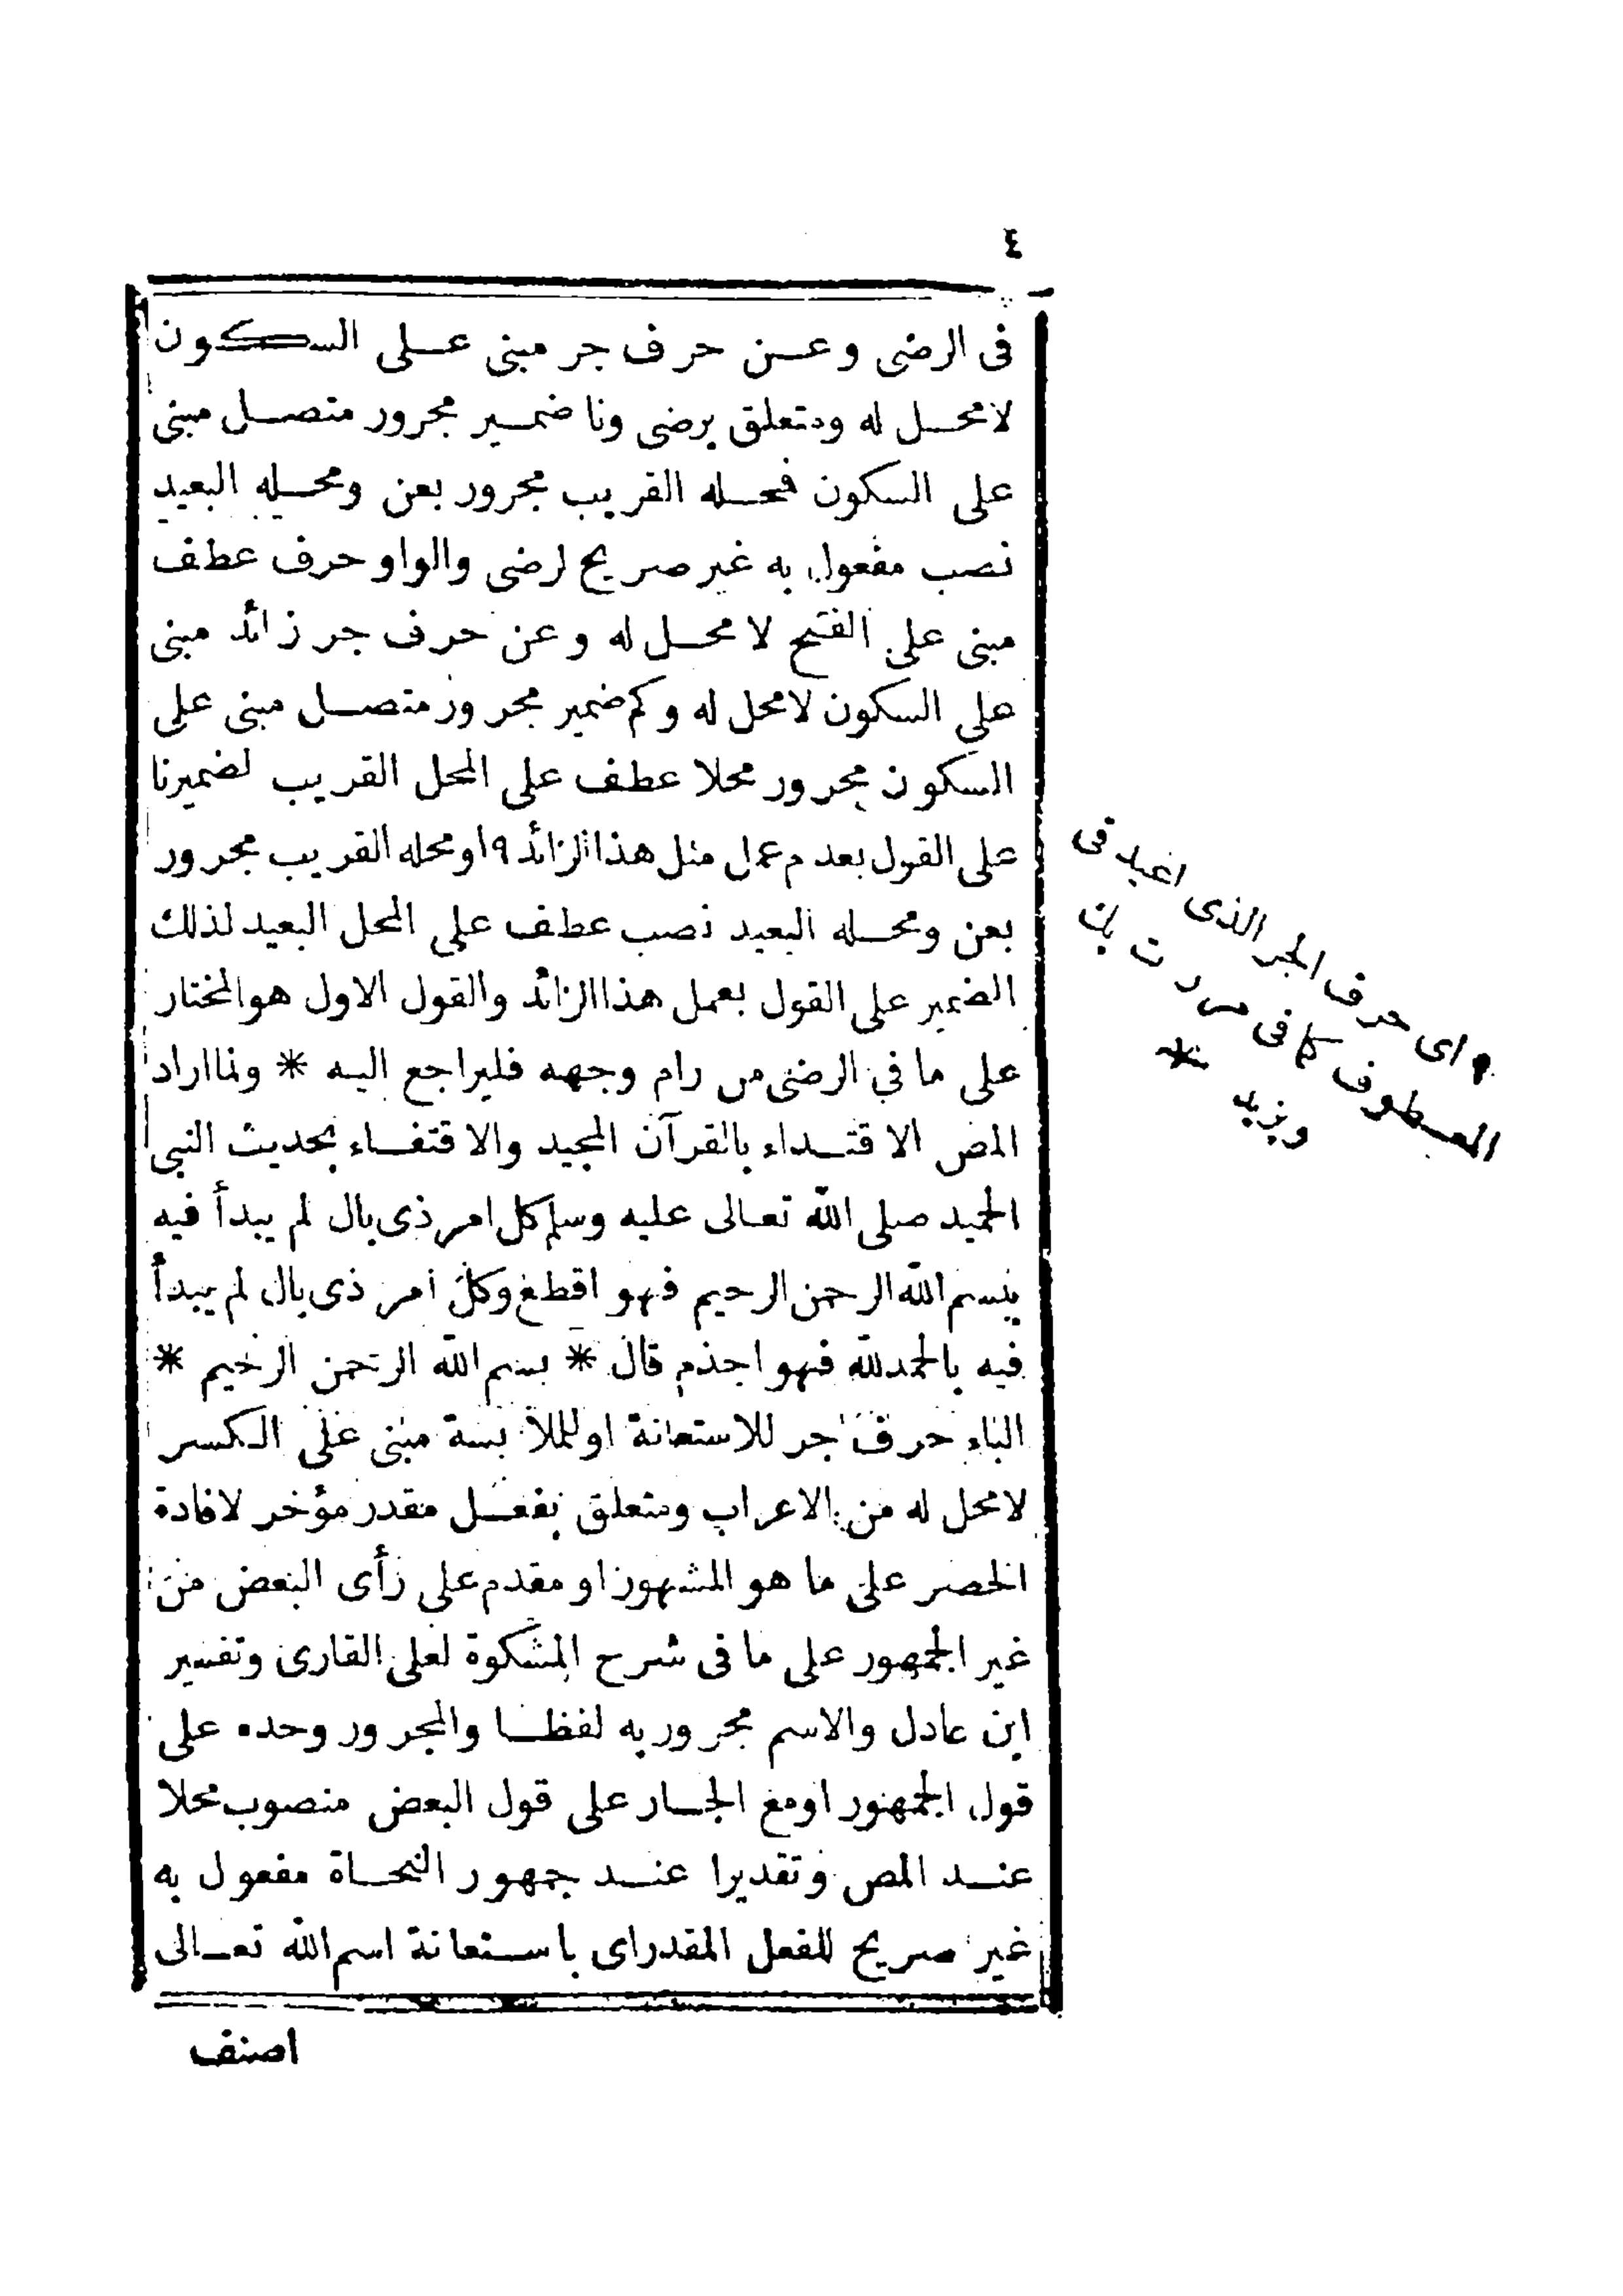 ٤
فى الرضى وعن حرف جر مبنى على السكون
لامحل له ومتعلق برضى ونا ضمير مجرور متصل مبنى
على السكون فمحله القريب مجرور بعن ومحله البعيد
نصب مفعول به غير صريح لرضى والواو حرف عطف
مبنى على الفتح لا محل له وعن حرف جر زائد مبنى
على السكون لامحل له وكم ضمير مجرور متصل مبنى على
السكون مجرور محلا عطف على المحل القريب لضميرنا
على القول بعدم عمل مثل هذا الزائد ٩ او محله القريب مجرور
بعن ومحله البعيد نصب عطف على المحل البعيد لذلك
الضمير على القول بعمل هذا الزائد والقول الاول هو المختار
على ما فى الرضى من رام وجهه فليراجع اليه * ولما اراد
المص الاقتداء بالقرآن المجيد والاقتفاء بحديث النبى
الحميد صلى الله تعالى عليه وسلم كل امر ذى بال لم يبدأ فيه
ببسم الله الرحمن الرحيم فهو اقطع وكل امر ذى بال لم يبدأ
فيه بالحمدلله فهو اجذم قال * بسم الله الرحمن الرحيم *
الباء حرف جر للاستعانة او للملابسة مبنى على الكسر
لامحل له من الاعراب ومتعلق بفعل مقدر مؤخر لافادة
الحصر على ما هو المشهور او مقدم على رأى البعض من
غير الجمهور على ما فى شرح المشكوة لعلى القارى وتفسير
ابن عادل والاسم مجرور به لفظا والمجرور وحده على
قول الجمهور او مع الجار على قول البعض منصوب محلا
عند المص وتقديرا عند جمهور النحاة مفعول به
غير صريح للفعل المقدر اى باستعانة اسم الله تعالى
اصنف
٩ اى حرف الجر الذى اعيد فى
المعطوف كما فى مررت بك
وبزيد *